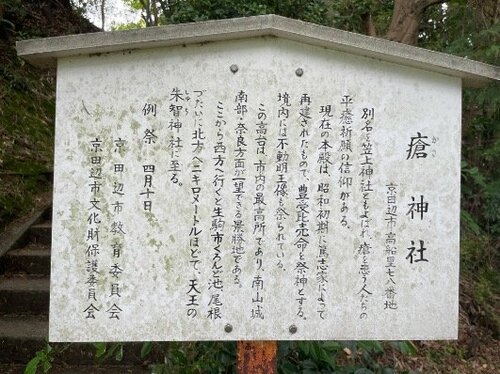 瘡神社
かさ
京田辺市高船里七八番地
別名を笠上神社ともよばれ瘡を患う人たちの
平癒祈願の信仰がある。
現在の本殿は、昭和初期に篤志家によって
再建されたもので、豊受比売命を祭神とする。
境内には不動明王像も祭られている。
この高台は、市内の最高所であり、南山城
南部・奈良方面が一望できる景勝地である。
ここから西方へ行くと生駒市くろんど池、尾根
づたいに北方へ二キロメートルほどで、天王の
朱智神社に至る。
しゅち
例祭 四月十日
京田辺市教育委員会
京田辺市文化財保護委員会